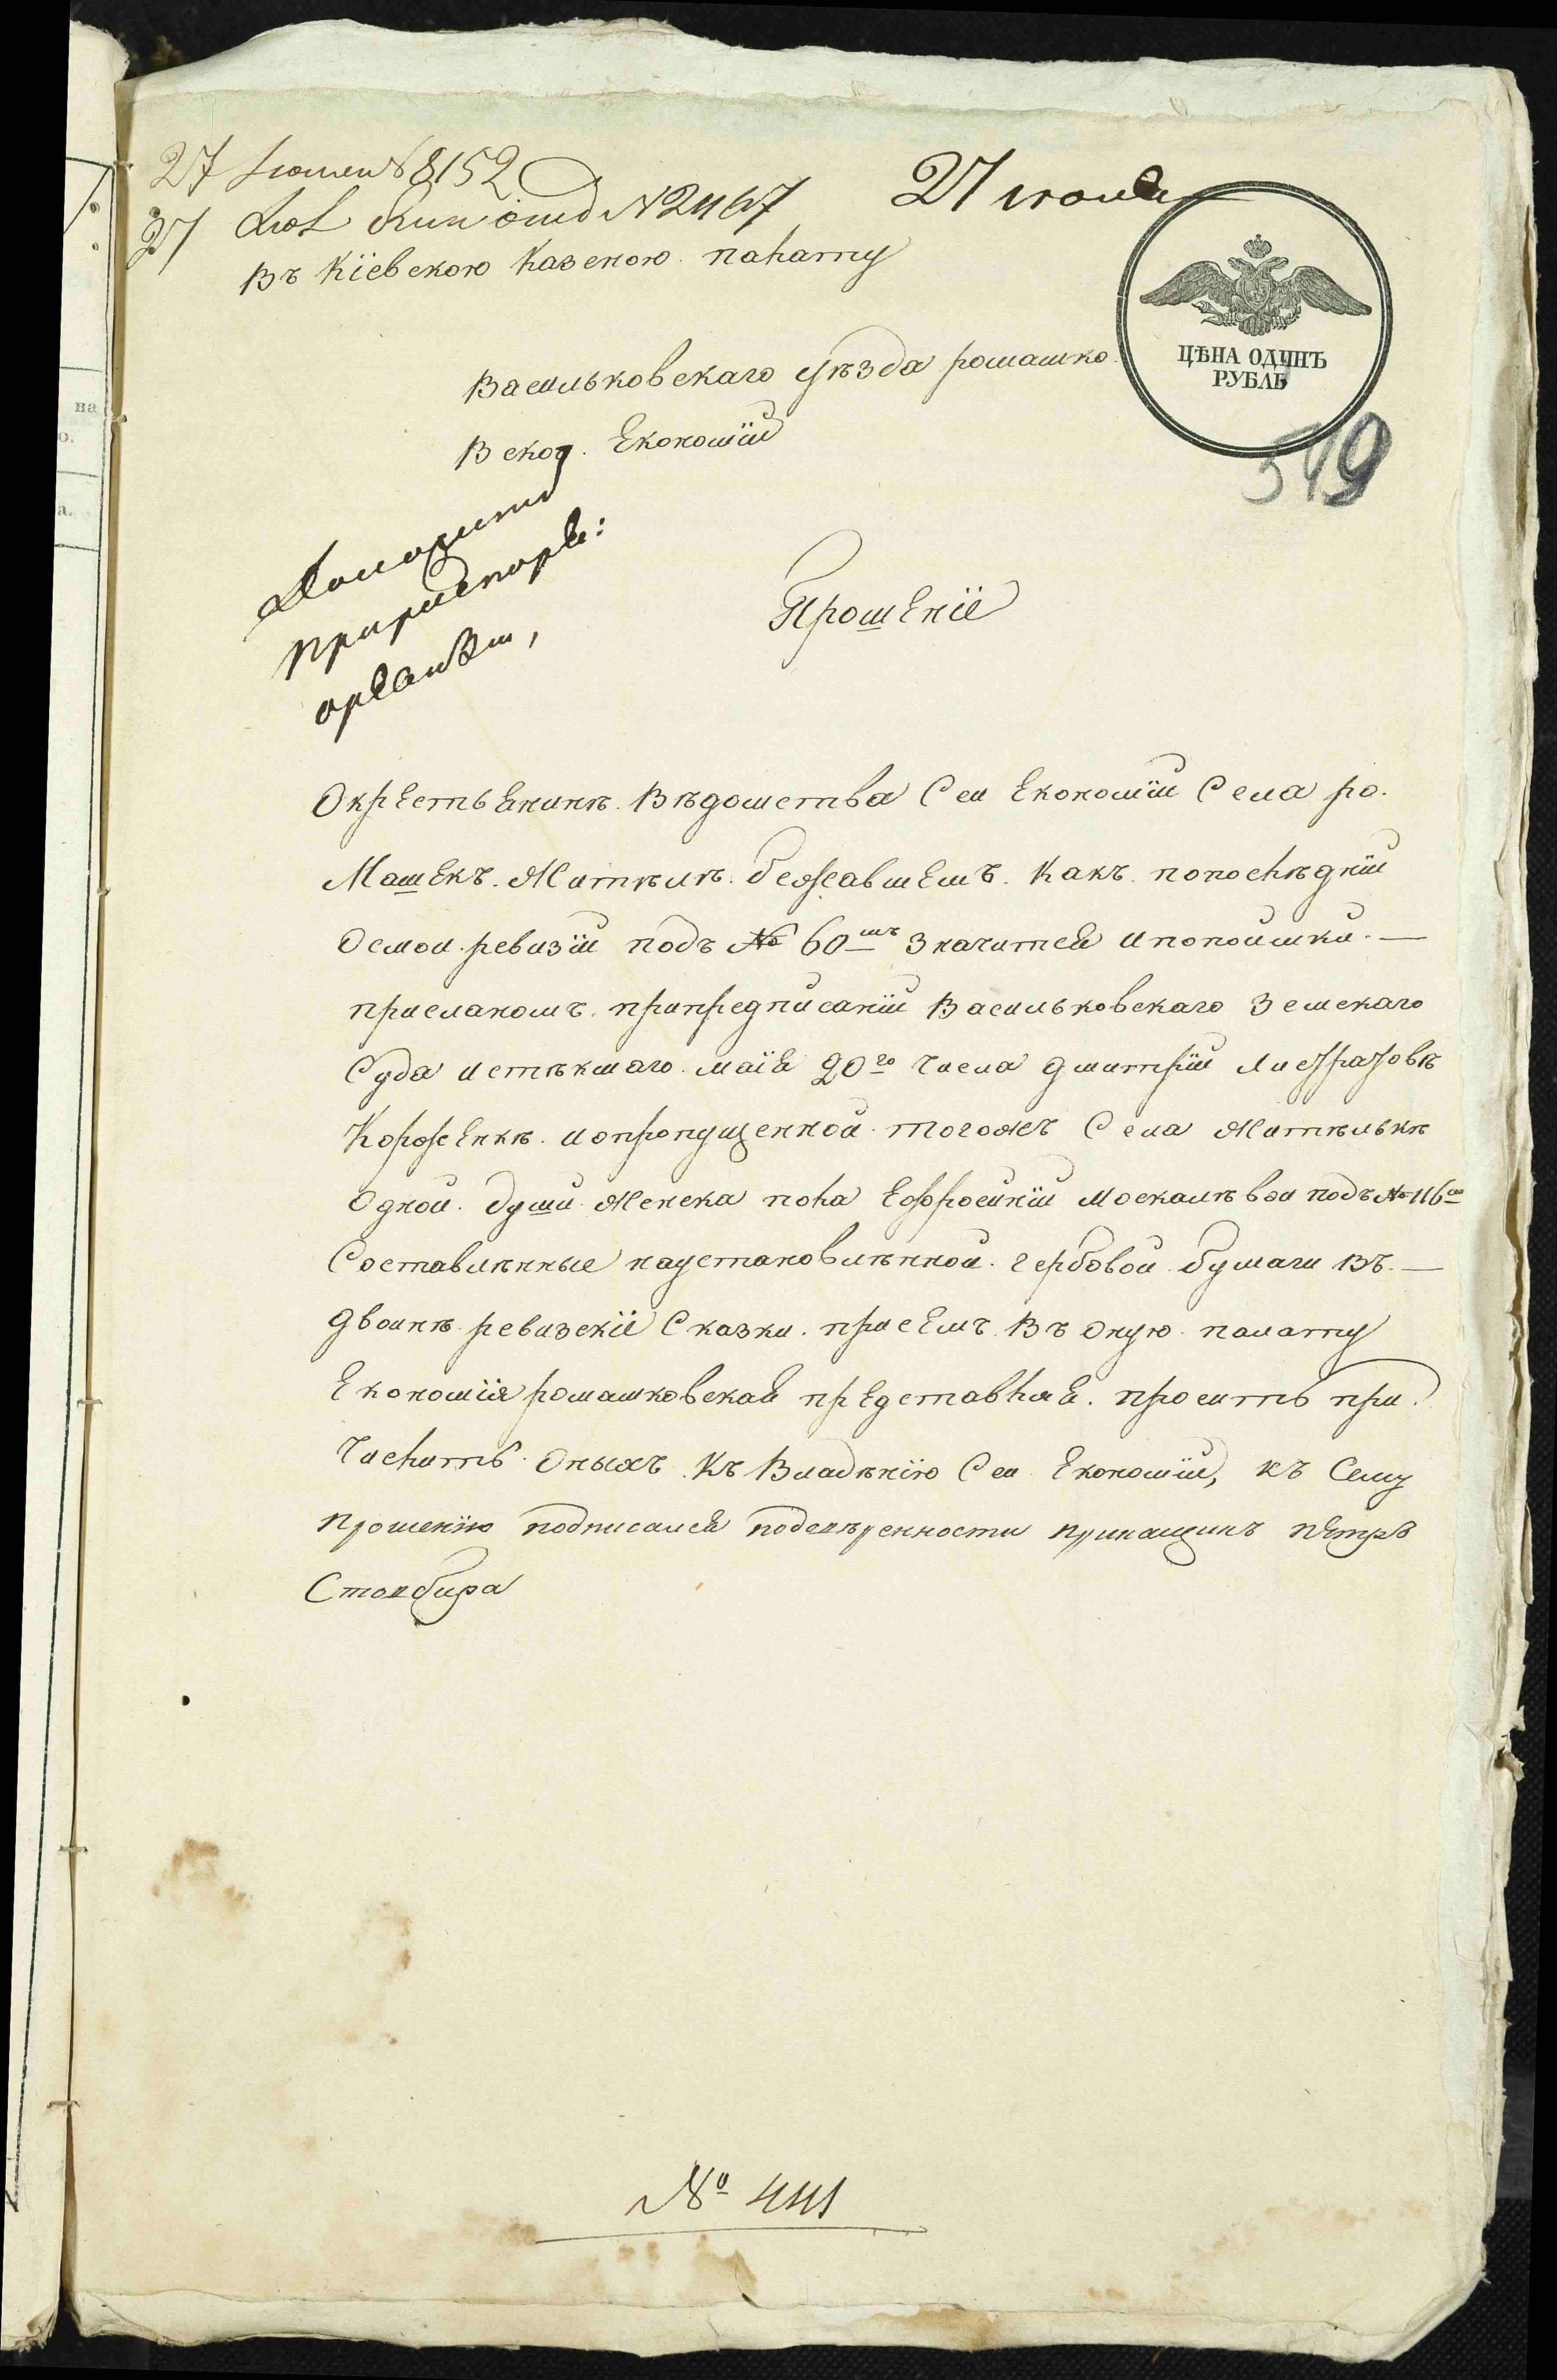 27 Іюля № 8152
27 Іюл № 2467
27 июля
Въ Кіевскою Казеною палату
ЦѢНА ОДИНЪ
РУБЛЬ
Васильковскаго уѣзда ромашко
вской Економіи
519
Доложить
при
Прошеніе
Окрестьянинѣ Вѣдомства Сей Економіи Села ро
Машекъ Жителѣ бежавшемъ Какъ попослѣдній
Осмой ревизіи подъ № 60мъ Значится ипопоимки —
присланомъ припредписаніи Васильковскаго Земскаго
Суда истѣкшаго маія 20го Числа дмитріи
Корженкѣ ипропущенной тогожъ Села Жителькѣ
Одной души Женска пола Ефросиніи Москалѣвой подъ № 116
Составлѣнные наустановлѣнной гербовой бумаги въ —
двойнѣ ревизскіе Сказки присемъ Въ Оную палату
Економія ромашковская прЕдставляя проситъ при
Числить Оныхъ Къ Владѣнію Сей Економіи, къ Сему
прошенію подписался подовѣренности прикащикъ пЕтръ
Столбира
на
о.
а.
№ 441